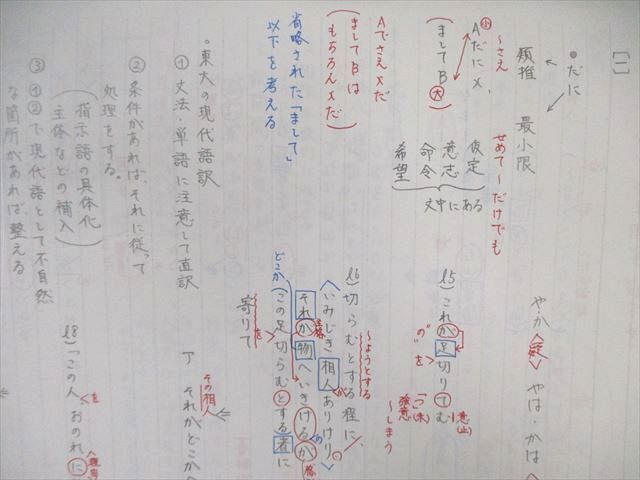 [一]
●だに
類推
最小限
～さえ
せめて～だけでも
㊙小
Aだに X、
(ましてB 大)
仮定
意志
命令
希望
文中にある
AでさえXだ
(ましてBはもちろんXだ)
省略された「まして」
以下を考える
・東大の現代語訳
① 文法・単語に注意して直訳
② 条件があれば、それに従って
処理をする。
(指示語の具体化
主体などの補入)
③ ①②で現代語として不自然
な箇所があれば、整える
や・か
やは・かは
l5) これか足切りてむ
"の"
を
強意
「つ」(未)
意(止)
～しまう
l6) 切らむとする程に、
～ようとする
〈いみじき相人ありけり。
が
主格
それか物へいきけるか
の
どこか
(この足切らむとする者に
を
寄りて
その相人
それがどこか
l8)「この人
を
おのれに